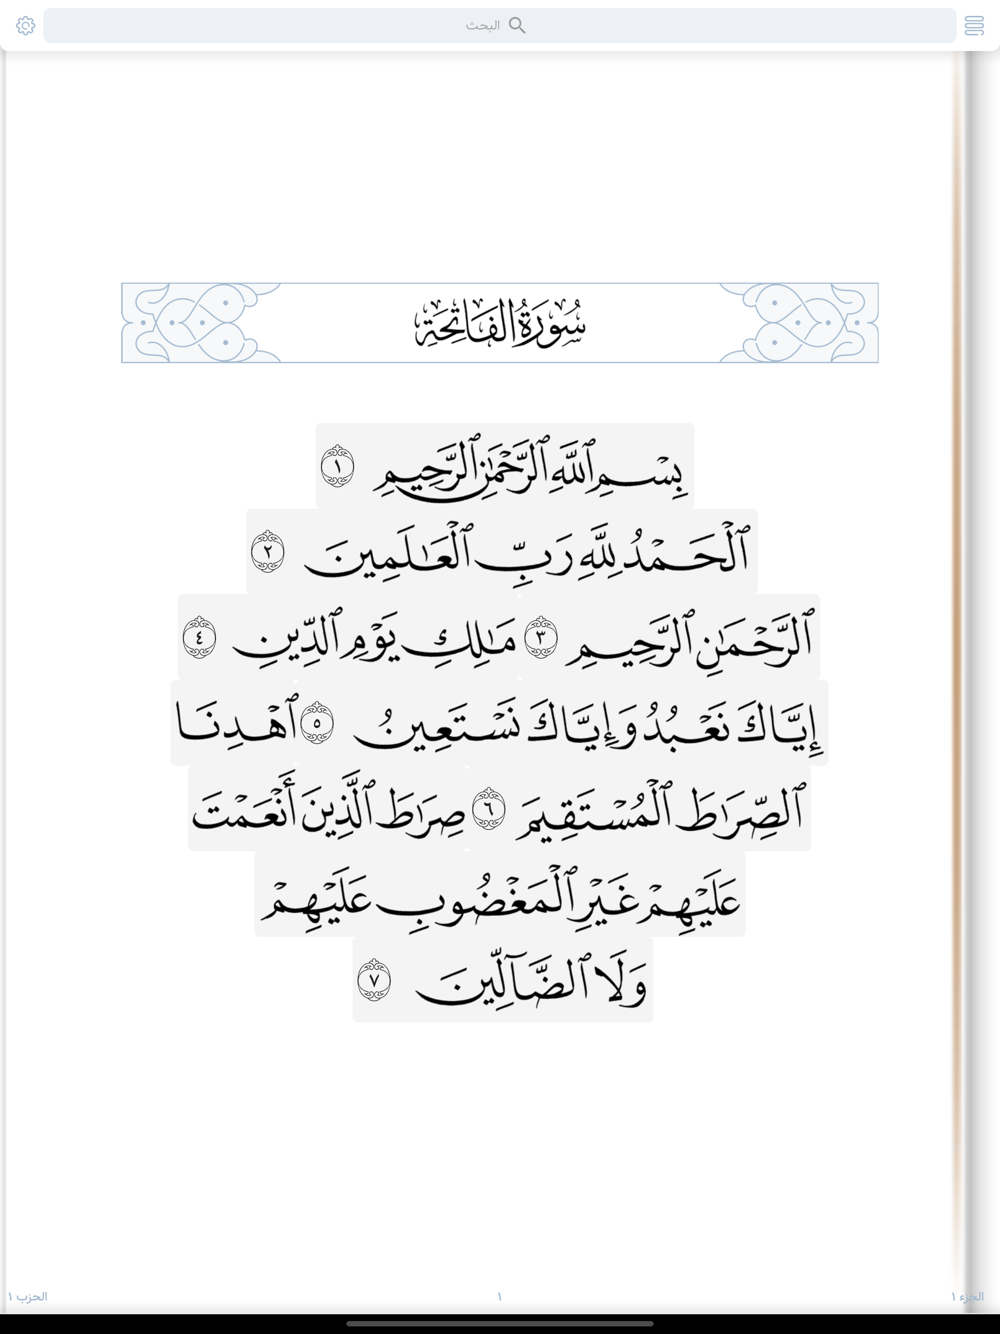 البحث
سُورَةُ الفَاتِحَةِ
بِسْمِ ٱللَّهِ ٱلرَّحْمَٰنِ ٱلرَّحِيمِ ١
ٱلْحَمْدُ لِلَّهِ رَبِّ ٱلْعَٰلَمِينَ ٢
ٱلرَّحْمَٰنِ ٱلرَّحِيمِ ٣ مَٰلِكِ يَوْمِ ٱلدِّينِ ٤
إِيَّاكَ نَعْبُدُ وَإِيَّاكَ نَسْتَعِينُ ٥ ٱهْدِنَا
ٱلصِّرَٰطَ ٱلْمُسْتَقِيمَ ٦ صِرَٰطَ ٱلَّذِينَ أَنْعَمْتَ
عَلَيْهِمْ غَيْرِ ٱلْمَغْضُوبِ عَلَيْهِمْ
وَلَا ٱلضَّآلِّينَ ٧
الجزء ١
١
الحزب ١